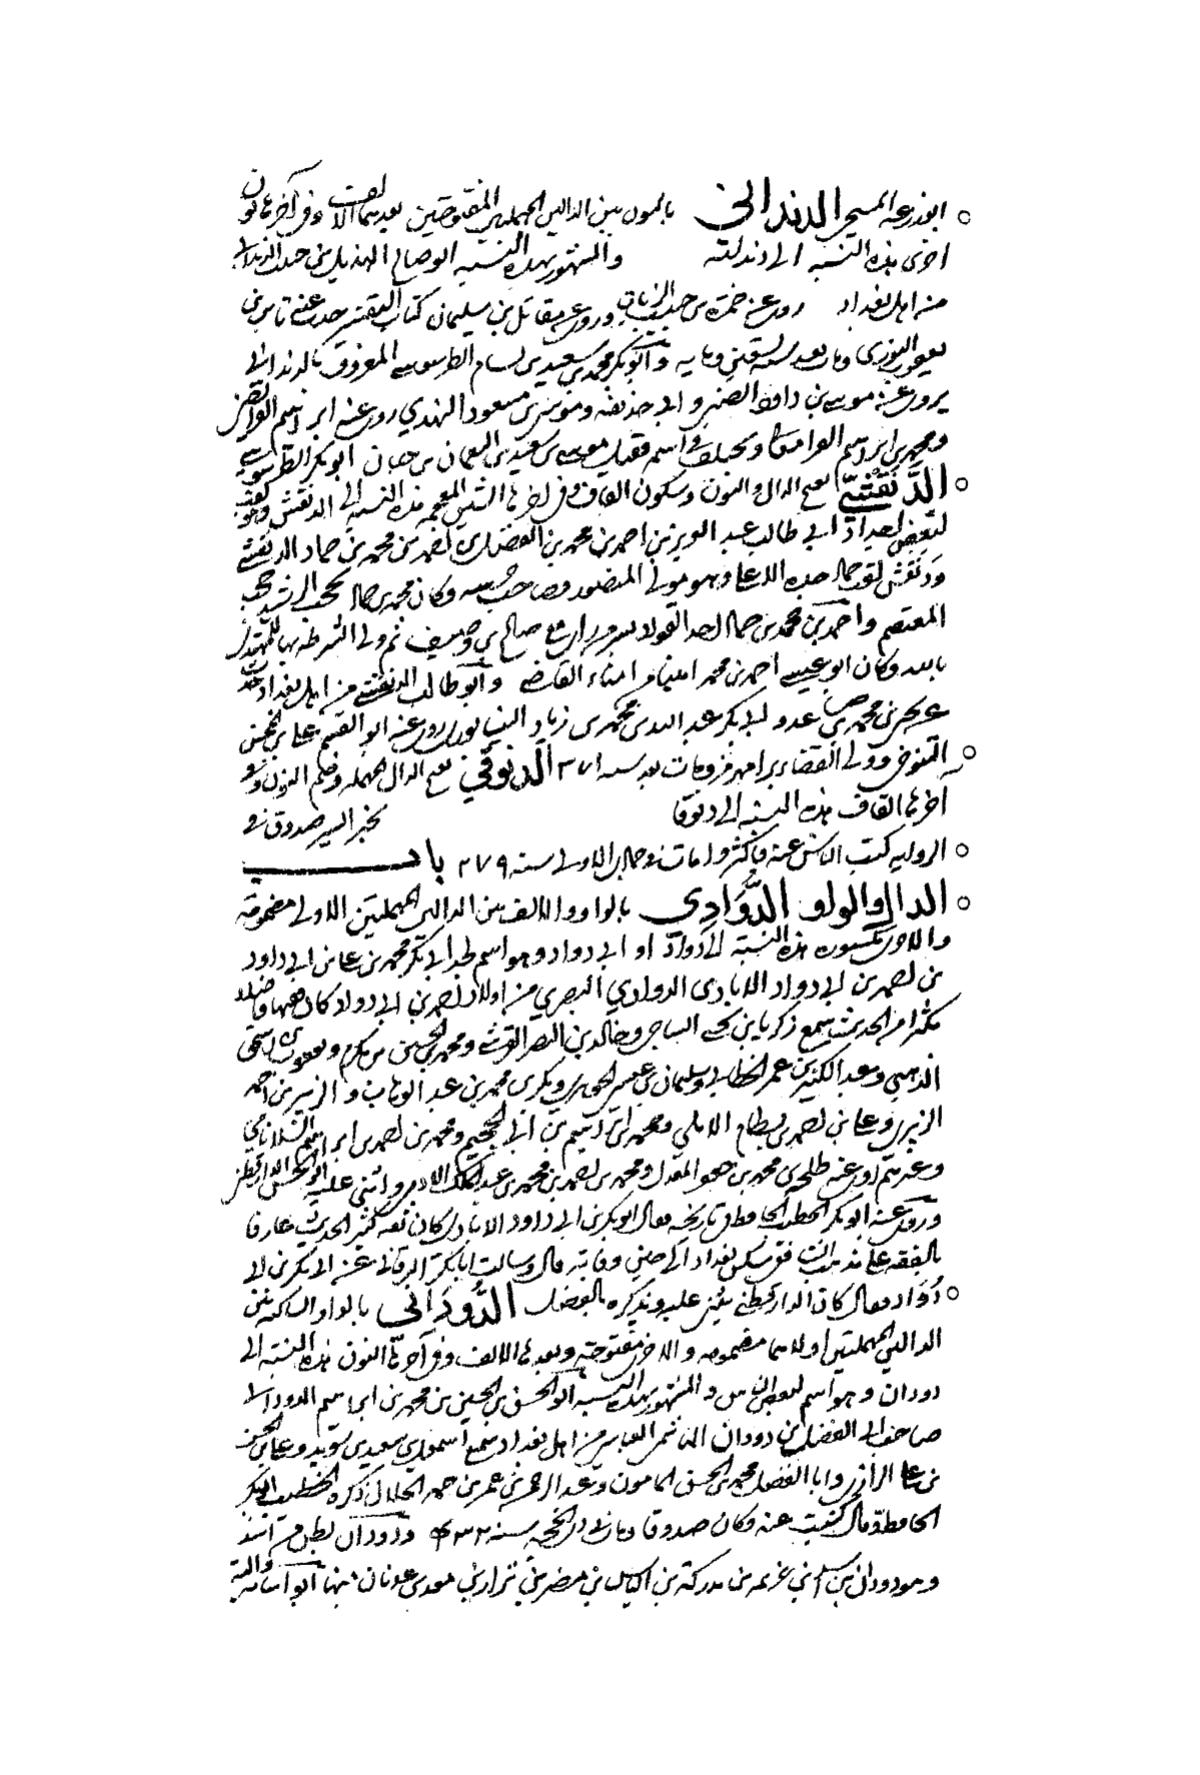 ابوزرعه المسيحي الدنداني بالنون بين الدالين المهملتين المفتوحتين بعدهما الالف وفي آخرها نون
اخرى هذه النسبة الى دندانة والمشهور بهذه النسبة ابو صالح الهذيل بن حبيب الدنداني
من اهل بغداد روى عن حمزة بن حبيب الزيات وروى عن مقاتل بن سليمان كتاب التفسير حدث عنه ثابت بن
يعقوب التوزي ومات بعد سنة تسعين ومايه وابو بكر محمد بن سعيد بن بسام الطرسوسي المعروف بالدنداني
يروى عن موسى بن داود الضبي وابي حذيفه موسى بن مسعود النهدي روى عنه ابراهيم
ومحمد بن ابراهيم اسمه فقيل موسى بن سعيد بن النعمان بن حبان ابو بكر الطرسوسي
الدَّنَقْشِيّ بفتح الدال والنون وسكون القاف وفي اخرها الشين المعجمه هذه النسبة الى الدنقش وهو
لبعض اجداد ابي طالب عبد العزيز بن احمد بن محمد بن الفضل بن احمد بن محمد بن حماد الدنقشي
ودنقش لقب حماد جده الاعلى وهو مولى المنصور وصاحب وكان محمد بن حماد يحجب الرشيد
المعتصم واحمد بن محمد بن حماد احد القواد مع صالح بن وصيف ثم ولى الشرطة بها للمهتدي
بالله وكان ابو عيسى احمد بن محمد امينا من امناء القاضي وابو طالب الدنقشي من اهل بغداد حدث
عن محمد بن لابي بكر عبد الله بن محمد بن زياد النيسابوري روى عنه ابو القسم علي بن المحسن
التنوخي وولى القضاء برامهرمز ومات بعد سنه ٣٧١ الدنوقي بفتح الدال المهمله وضم النون وفي
آخرها القاف هذه النسبة الى دنوقا
الرواية كتب الناس عنه فاكثروا مات في جمادى الاولى سنة ٢٧٩ باب
الدال والواو الدُّوَادي بالواو والالف بين الدالين المهملتين الاولى مضمومة
والاخرى مكسورة هذه النسبة الى دواد او ابي دواد وهو اسم لجد ابي بكر محمد بن علي بن ابي داود
بن احمد بن ابي دواد الايادي الدوادي البصري من اولاد احمد بن ابي دواد كان فقيها فاضلا
مكثرا من الحديث سمع زكريا بن يحيى الساجي وخالد بن النضر القرشي ومحمد بن الحسين بن مكرم ويعقوب بن اسحق
الذهبي وعبد الكبير بن عمر الخطابي وسليمان بن عيسى الجوهري وبكر بن محمد بن عبد الوهاب والزبير بن احمد
الزبيري وعلي بن احمد بن بسطام الابلي ومحمد بن ابراهيم بن ابي الجحيم ومحمد بن احمد بن ابراهيم الشلاثائي
وغيرهم روى عنه طلحة بن محمد بن جعفر المعدل ومحمد بن احمد بن محمد بن عبد الملك الادمي واثنى عليه ابو الحسن الدارقطني
وروى عنه ابو بكر الخطيب الحافظ في تاريخه فقال ابو بكر بن ابي داود الايادي كان ثقة كثير الحديث عارفا
بالفقه على مذهب الشافعي سكن بغداد الى حين وفاته قال وسالت ابا بكر البرقاني عن ابي بكر بن ابي
دُوَاد فقال كان الدارقطني يثني عليه ويذكره بالفضل الدُّودَاني بالواو الساكنه بين
الدالين المهملتين اولاهما مضمومه والاخرى مفتوحة وبعدها الالف وفي آخرها النون هذه النسبة الى
دودان وهو اسم لبعض الناس والمشهور بهذه النسبة ابو الحسن بن الحسين بن محمد بن ابراهيم الدوداني
صاحب ابي الفضل بن دودان الهاشمي العباسي من اهل بغداد سمع اسمعيل بن سعيد بن سويد وعلي بن الحسن
بن علي الرازي وابا الفضل محمد بن الحسن المامون وعبد الرحمن بن عمر بن حمه الخلال ذكره الخطيب ابو بكر
الحافظ وقال كتبت عنه وكان صدوقا ومات في ذي الحجة سنة ودودان بطن من اسد
وهو دودان بن اسد بن خزيمه بن مدركة بن الياس بن مضر بن نزار بن معد بن عدنان منها ابو اسامه والبة